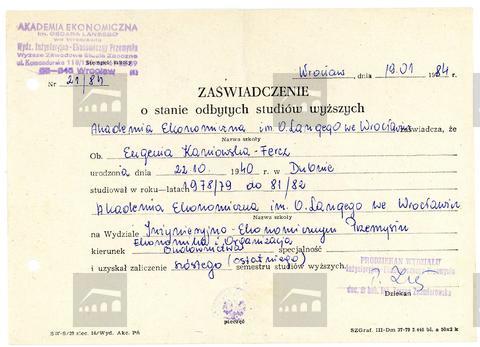 AKADEMIA EKONOMICZNA
IM. OSKARA LANGEGO
we Wrocławiu
Wydz. Inżynieryjno-Ekonomiczny Przemysłu
Wyższe Zawodowe Studia Zaoczne
ul. Komandorska 118/1
Wrocław
Nr 21/84
Wrocław, dnia 19.01 1984 r.
ZAŚWIADCZENIE
o stanie odbytych studiów wyższych
Akademia Ekonomiczna im O. Langego we Wrocławiu zaświadcza, że
Nazwa szkoły
Ob. Eugenia Kaniowska-Fercz
urodzona dnia 22.10 1940 r. w Dubnie
studiował w roku—latach 1978/79 do 81/82
Akademia Ekonomiczna im. O. Langego we Wrocławiu
Nazwa szkoły
na Wydziale Inżynieryjno-Ekonomicznym Przemysłu
Ekonomika i Organizacja
kierunek Budownictwa specjalność
i uzyskał zaliczenie szóstego (ostatniego) semestru studiów wyższych
PRODZIEKAN WYDZIAŁU
Inżynieryjno-Ekonomicznego Przemysłu
Dziekan
pieczęć